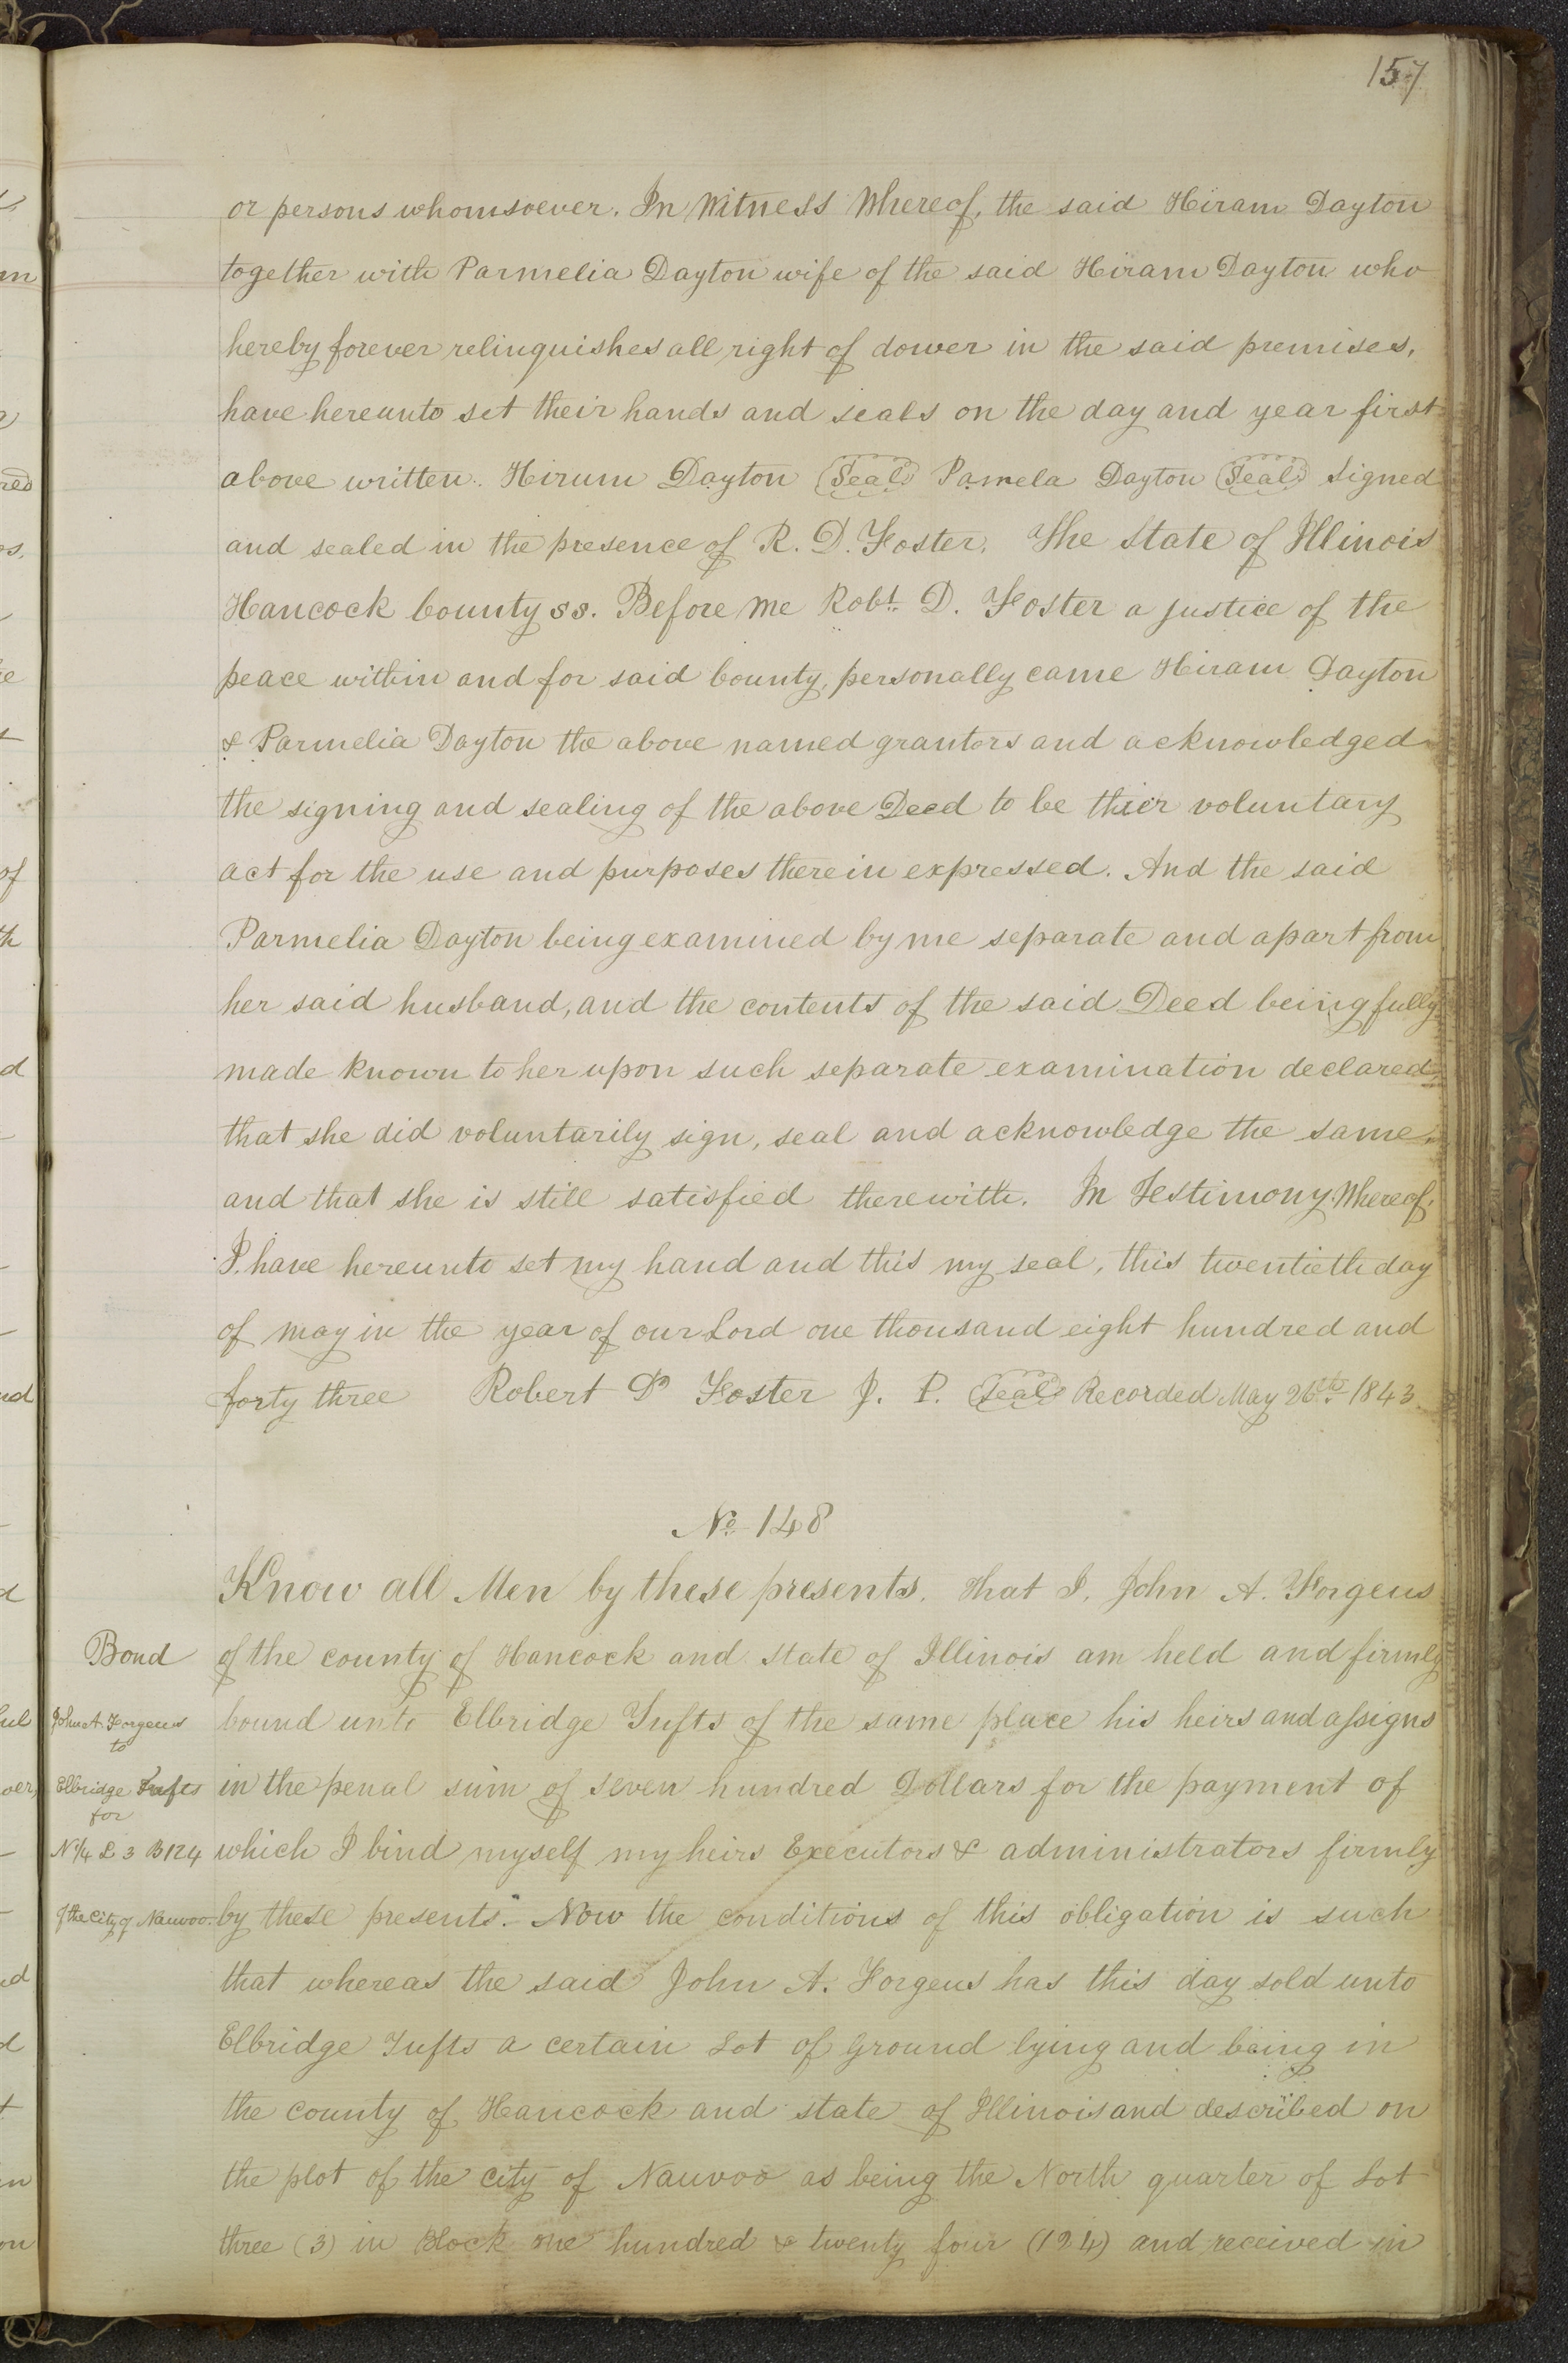 157
or persons whomsoever. In Witness Whereof, the said Hiram Dayton
together with Parmelia Dayton wife of the said Hiram Dayton who
hereby forever relinquishes all right of dower in the said premises,
have hereunto set their hands and seals on the day and year first
above written. Hirum Dayton (Seal) Pamela Dayton (Seal) Signed
and sealed in the presence of R. D. Foster. The State of Illinois
Hancock County ss. Before me Robt. D. Foster a justice of the
peace within and for said County, personally came Hiram Dayton
& Parmelia Dayton the above named grantors and acknowledged
the signing and sealing of the above Deed to be thier voluntary
act for the use and purposes therein expressed. And the said
Parmelia Dayton being examined by me separate and apart from
her said husband, and the contents of the said Deed being fully
made known to her upon such separate examination declared,
that she did voluntarily sign, seal and acknowledge the same,
and that she is still satisfied therewith. In Testimony Whereof,
I have hereunto set my hand and this my seal, this twentieth day
of may in the year of our Lord one thousand eight hundred and
forty three Robert D Foster J. P. (Seal) Recorded May 26th 1843.
No. 148
Know all Men by these presents. that I, John A. Forgeus
Bond of the county of Hancock and State of Illinois am held and firmly
John A. Forgeus bound unto Elbridge Tufts of the same place his heirs and assigns
to
Elbridge Tufts in the penal sum of seven hundred Dollars for the payment of
for
N 1/4 L 3 B 124 which I bind myself my heirs Executors & administrators firmly
of the City of Nauvoo. by these presents. Now the conditions of this obligation is such
that whereas the said John A. Forgeus has this day sold unto
Elbridge Tufts a certain Lot of Ground lying and being in
the county of Hancock and state of Illinois and described on
the plot of the city of Nauvoo as being the North quarter of Lot
three (3) in Block one hundred & twenty four (124) and received in